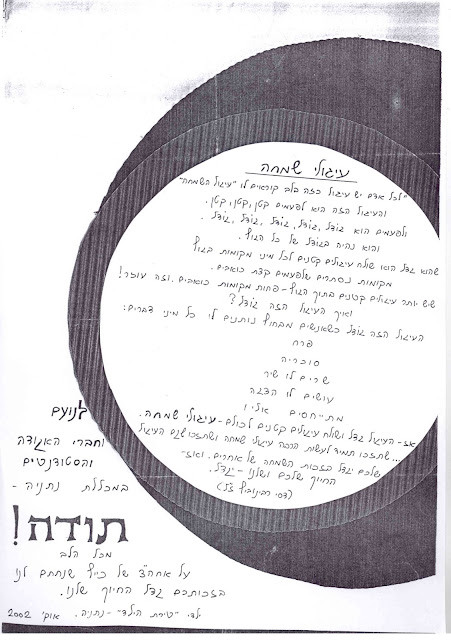 עיגולי שמחה
"לכל אדם יש עיגול כזה בלב קוראים לו "עיגול השמחה"
והעיגול הזה הוא לפעמים קטן, קטן, קטן.
ולפעמים הוא גודל, גודל, גודל, גודל, גודל.
והוא נהיה בגודל של כל הגוף.
שהוא גדל הוא שולח עיגולים קטנים לכל מיני מקומות בגוף
מקומות נסתרים שלפעמים קצת כואבים.
שיש יותר עיגולים קטנים בתוך הגוף - פחות מקומות כואבים. וזה עוזר!
ואיך העיגול הזה גודל?
העיגול הזה גודל כשאנשים מבחוץ נותנים לו כל מיני דברים:
פרח
סוכריה
שרים לו שיר
עושים לו הצגה
מתייחסים אליו
ואז - העיגול גדל ושולח עיגולים קטנים לכולם - עיגולי שמחה.
...שתזכו תמיד לעשות הרבה עיגולי שמחה ושתזכו שגם העיגול
שלכם יגדל בזכות השמחה של אחרים. ואז -
החיוך שלכם ושלנו - יגדל.
(דסי רבינוביץ ז"ל)
לנועם
וחברי האגודה
והסטודנטים
במכללת נתניה -
תודה!
מכל הלב
על אחה"צ של כייף שנתתם לנו
בזכותכם גדל החיוך שלנו.
ילדי "טירת הילד" - נתניה. אוק' 2002